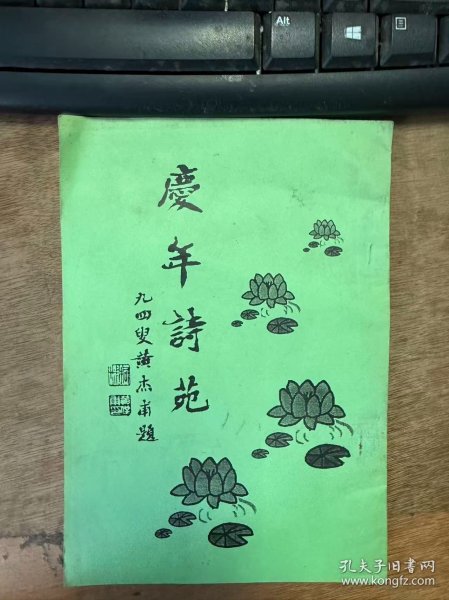 Alt
慶年詩苑
九四叟黄杰甫題
孔夫子旧书网
www.kongfz.com